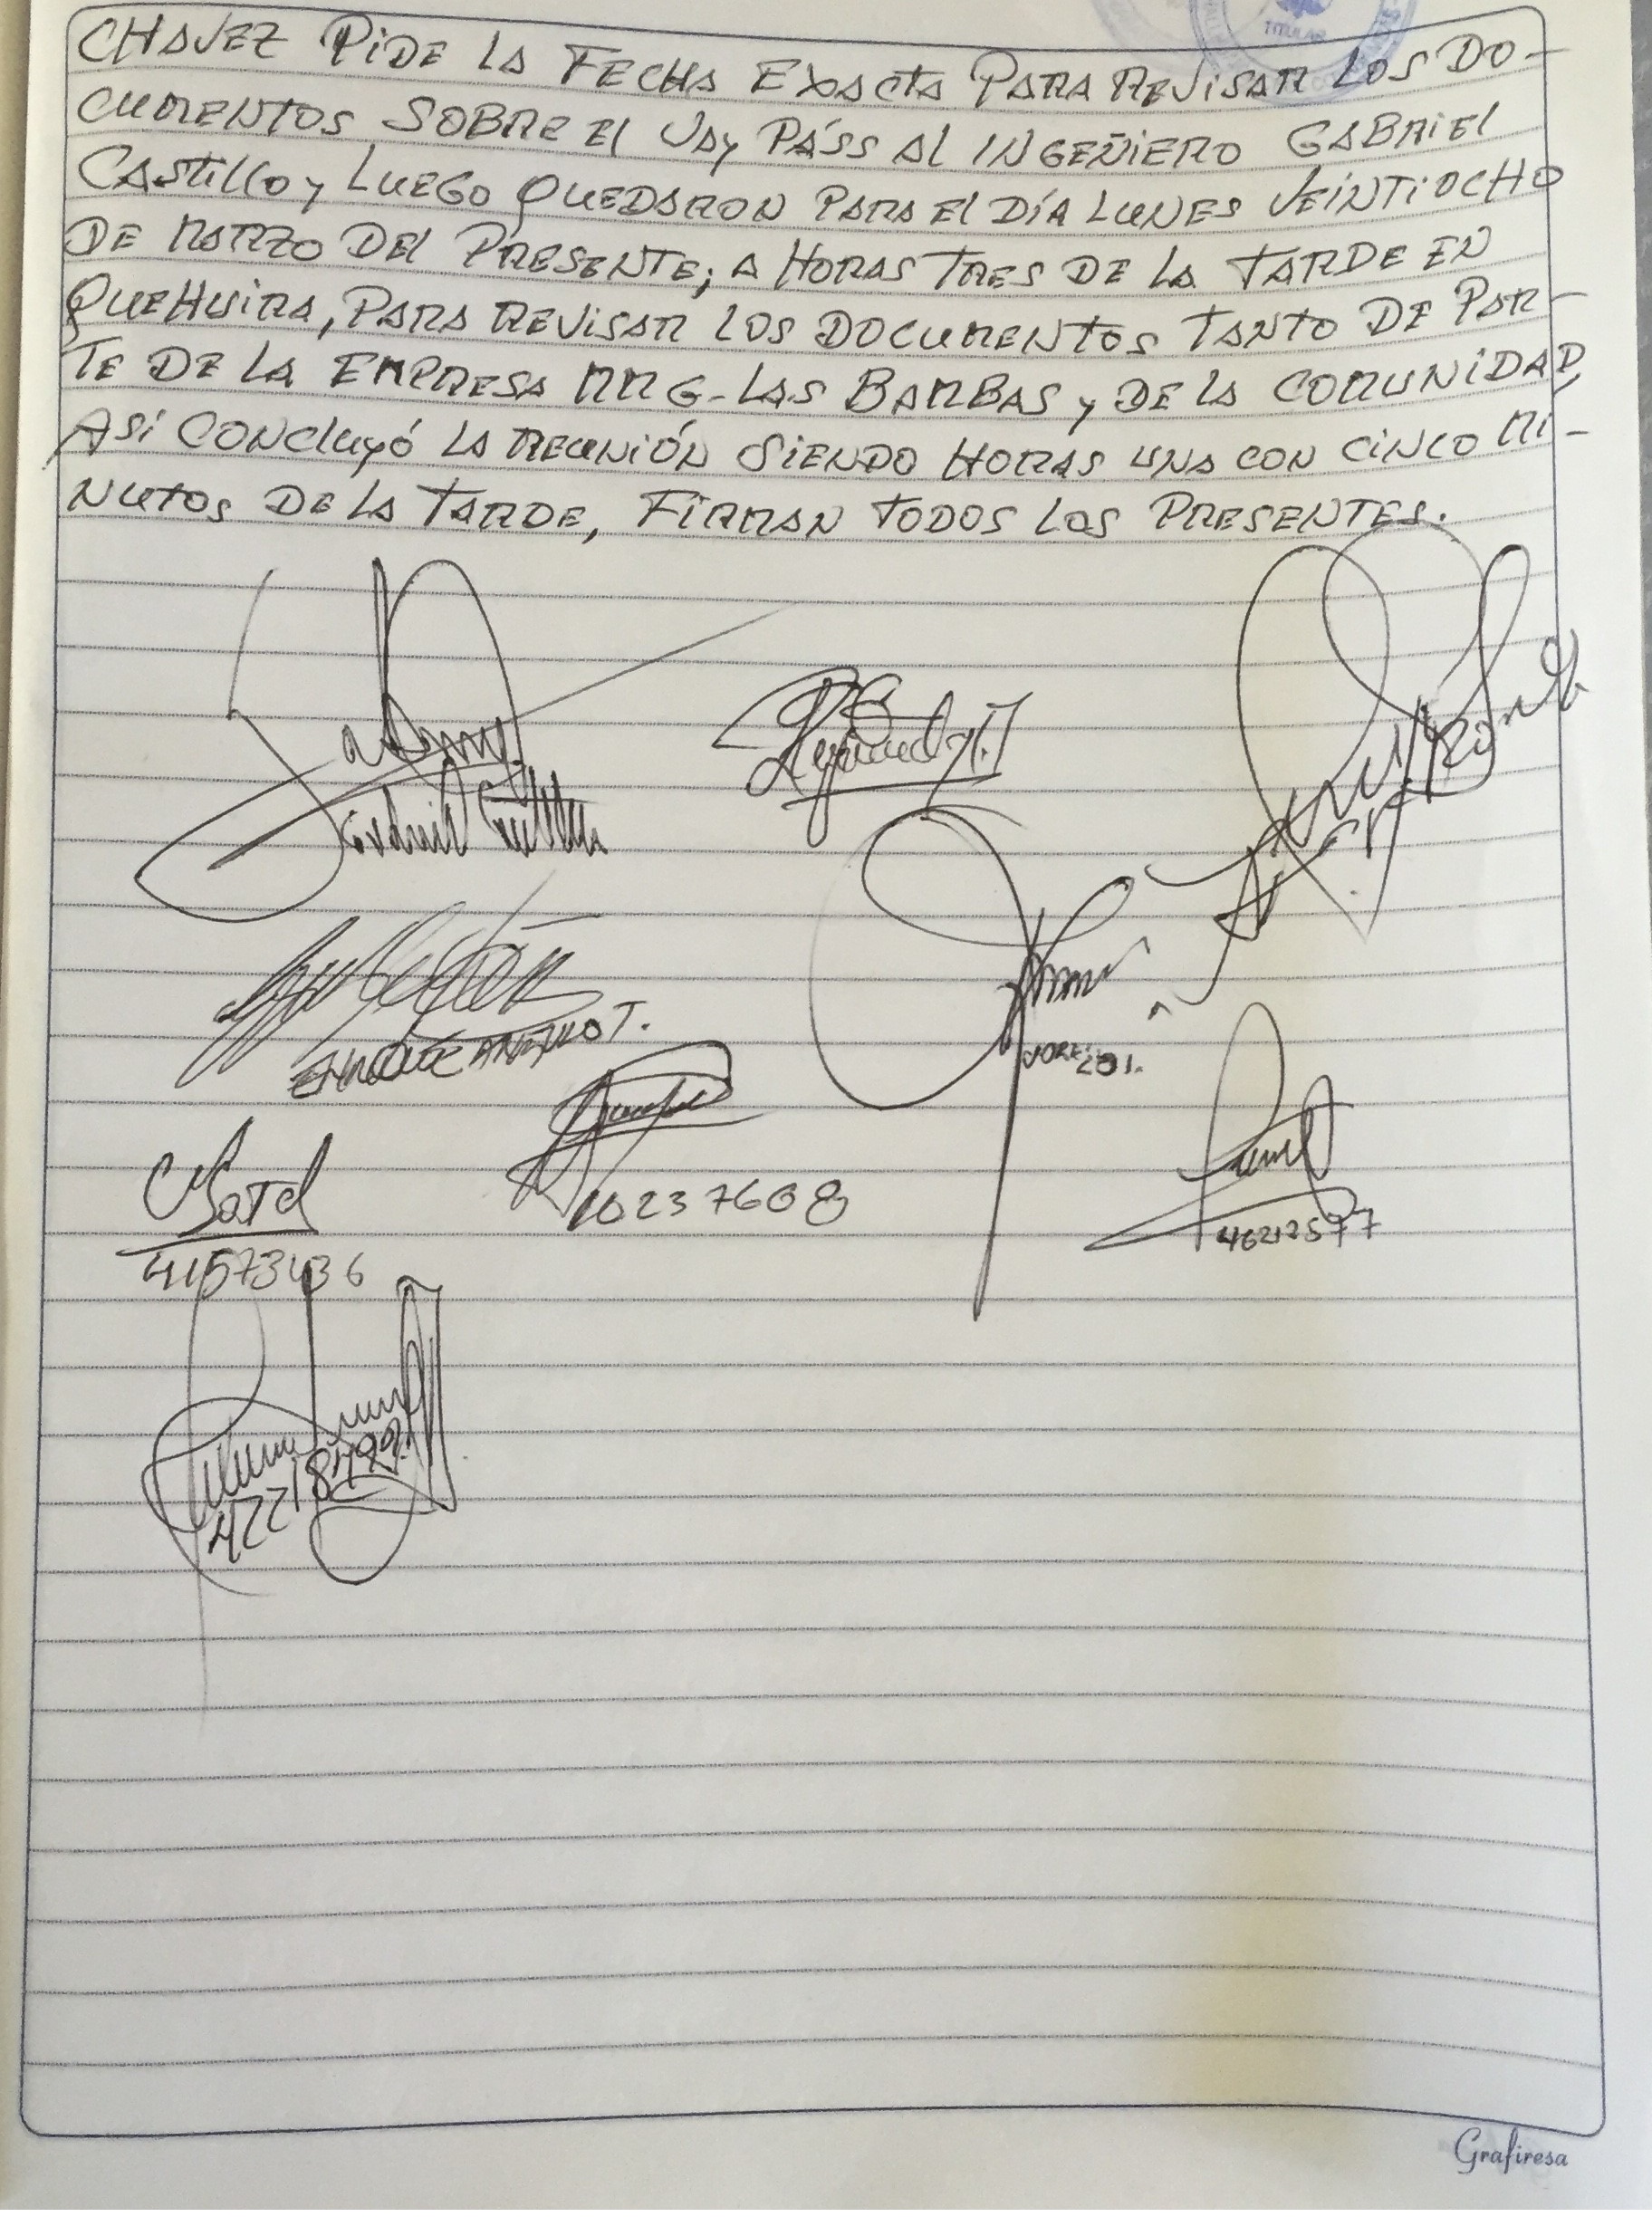 TITULAR
CHAVEZ PIDE LA FECHA EXACTA PARA REVISAR LOS DO-
CUMENTOS SOBRE El VAy PÁSS Al INGEÑIERO GABRIEl
CASTILLO y LUEGO QUEDARON PARA El DÍA LUNES VEINTIOCHO
DE MARZO DEl PRESENTE; A HORAS TRES DE LA TARDE EN
QUEHUIRA, PARA REVISAR LOS DOCUMENTOS TANTO DE PAR-
TE DE LA EMPRESA MMG-LAS BAMBAS y DE LA COMUNIDAD,
ASÍ CONCluyÓ LA REUNIÓN SIENDO HORAS UNA CON CINCO MI-
NUTOS DE LA TARDE, FIRMAN TODOS LOS PRESENTES.
ENRIQUE T.
10237608
41573436
46212577
Grafiresa